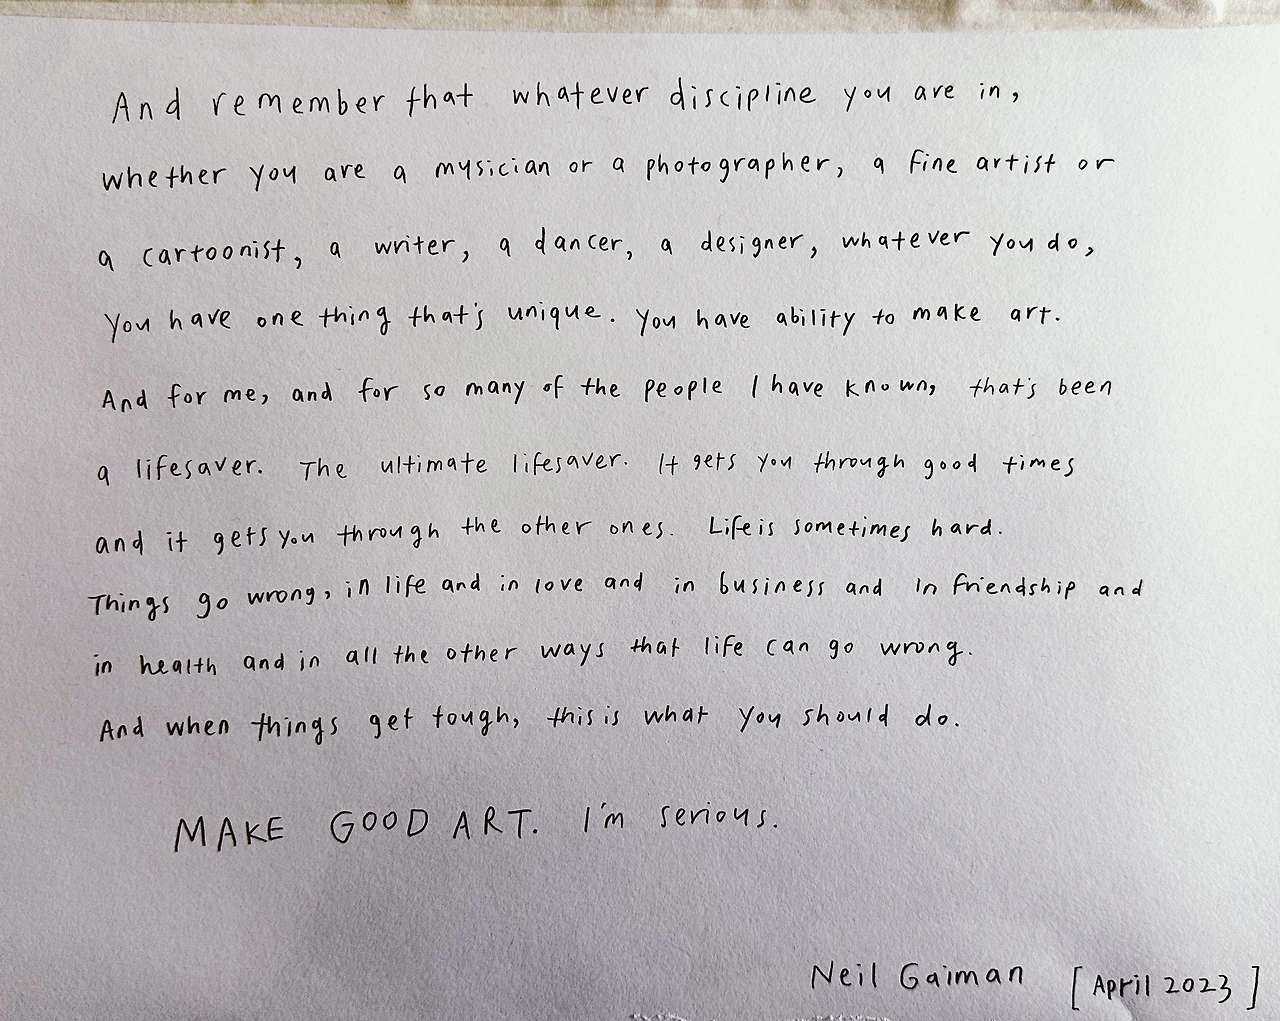 And remember that whatever discipline you are in,
whether you are a musician or a photographer, a fine artist or
a cartoonist, a writer, a dancer, a designer, whatever you do,
you have one thing that's unique. You have ability to make art.
And for me, and for so many of the people I have known, that's been
a lifesaver. The ultimate lifesaver. It gets you through good times
and it gets you through the other ones. Life is sometimes hard.
Things go wrong, in life and in love and in business and in friendship and
in health and in all the other ways that life can go wrong.
And when things get tough, this is what you should do.
MAKE GOOD ART. I'm serious.
Neil Gaiman [April 2023]